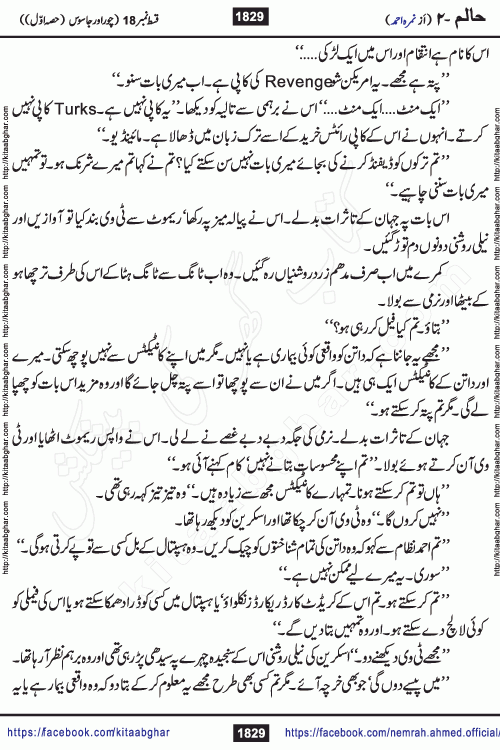 حالم -۲ (از نمرہ احمد) 1829 قسط نمبر 18 (چور اور جاسوس (حصہ اوّل))
اس کا نام ہے انتقام اور اس میں ایک لڑکی.....‘‘
’’پتہ ہے مجھے۔ یہ امریکن شو Revenge کی کاپی ہے۔ اب میری بات سنو۔‘‘
’’ایک منٹ....ایک منٹ...‘‘ اس نے برہمی سے تالیہ کو دیکھا۔ ’’یہ کاپی نہیں ہے۔ Turks کاپی نہیں
کرتے۔ انہوں نے اس کے کاپی رائٹس خرید کے اسے ترک زبان میں ڈھالا ہے۔ مائینڈ یو۔‘‘
’’تم ترکوں کو ڈیفنڈ کرنے کی بجائے میری بات نہیں سن سکتے کیا؟ تم نے کہا تم میرے شرنک ہو۔ تو تمہیں
میری بات سننی چاہیے۔‘‘
اس بات پہ جہان کے تاثرات بدلے۔ اس نے پیالہ میز پہ رکھا‘ ریموٹ سے ٹی وی بند کیا تو آوازیں اور
نیلی روشنی دونوں دم توڑ گئیں۔
کمرے میں اب صرف مدھم زرد روشنیاں رہ گئیں۔ وہ اب ٹانگ سے ٹانگ ہٹا کے اس کی طرف ترچھا ہو
کے بیٹھا اور نرمی سے بولا۔
’’بتاؤ۔ تم کیا فیل کر رہی ہو؟‘‘
’’مجھے یہ جاننا ہے کہ داتن کو واقعی کوئی بیماری ہے یا نہیں۔ مگر میں اپنے کانٹیکٹس سے نہیں پوچھ سکتی۔ میرے
اور داتن کے کانٹیکٹس ایک ہی ہیں۔ اگر میں نے ان سے پوچھا تو اسے پتہ چل جائے گا اور وہ مزید اس بات کو چھپا
لے گی۔ مگر تم پتہ کر سکتے ہو۔‘‘
جہان کے تاثرات بدلے۔ نرمی کی جگہ دبے دبے غصے نے لے لی۔ اس نے واپس ریموٹ اٹھایا اور ٹی
وی آن کرتے ہوئے بولا۔ ’’تم اپنے محسوسات بتانے نہیں‘ کام کہنے آئی ہو۔‘‘
’’ہاں تو تم کر سکتے ہونا۔ تمہارے کانٹیکٹس مجھ سے زیادہ ہیں۔‘‘ وہ تیز تیز کہہ رہی تھی۔
’’نہیں کروں گا۔‘‘ وہ ٹی وی آن کر چکا تھا اور اسکرین کو دیکھ رہا تھا۔
’’تم احمد نظام سے کہو کہ وہ داتن کی تمام شناختوں کو چیک کریں۔ وہ ہسپتال کے بل کسی سے تو پے کرتی ہو گی۔‘‘
’’سوری۔ یہ میرے لیے ممکن نہیں ہے۔‘‘
’’تم کر سکتے ہو۔ تم اس کے کریڈٹ کارڈ ریکارڈز نکلواؤ‘ یا ہسپتال میں کسی کو ڈرا دھمکا سکتے ہو یا اس کی فیملی کو
کوئی لالچ دے سکتے ہو۔ اور وہ تمہیں بتا دیں گے۔‘‘
’’مجھے ٹی وی دیکھنے دو۔‘‘ اسکرین کی نیلی روشنی اس کے سنجیدہ چہرے پہ سیدھی پڑ رہی تھی اور وہ برہم نظر آ رہا تھا۔
’’میں پیسے دوں گی‘ جو بھی خرچہ آئے۔ مگر تم کسی بھی طرح مجھے یہ معلوم کر کے بتا دو کہ وہ واقعی بیمار ہے یا یہ
https://facebook.com/kitaabghar 1829 https://facebook.com/nemrah.ahmed.official/
http://kitaabghar.com http://kitaabghar.com http://kitaabghar.com http://kitaabghar.com http://kitaabghar.com
http://kitaabghar.com http://kitaabghar.com http://kitaabghar.com http://kitaabghar.com http://kitaabghar.com